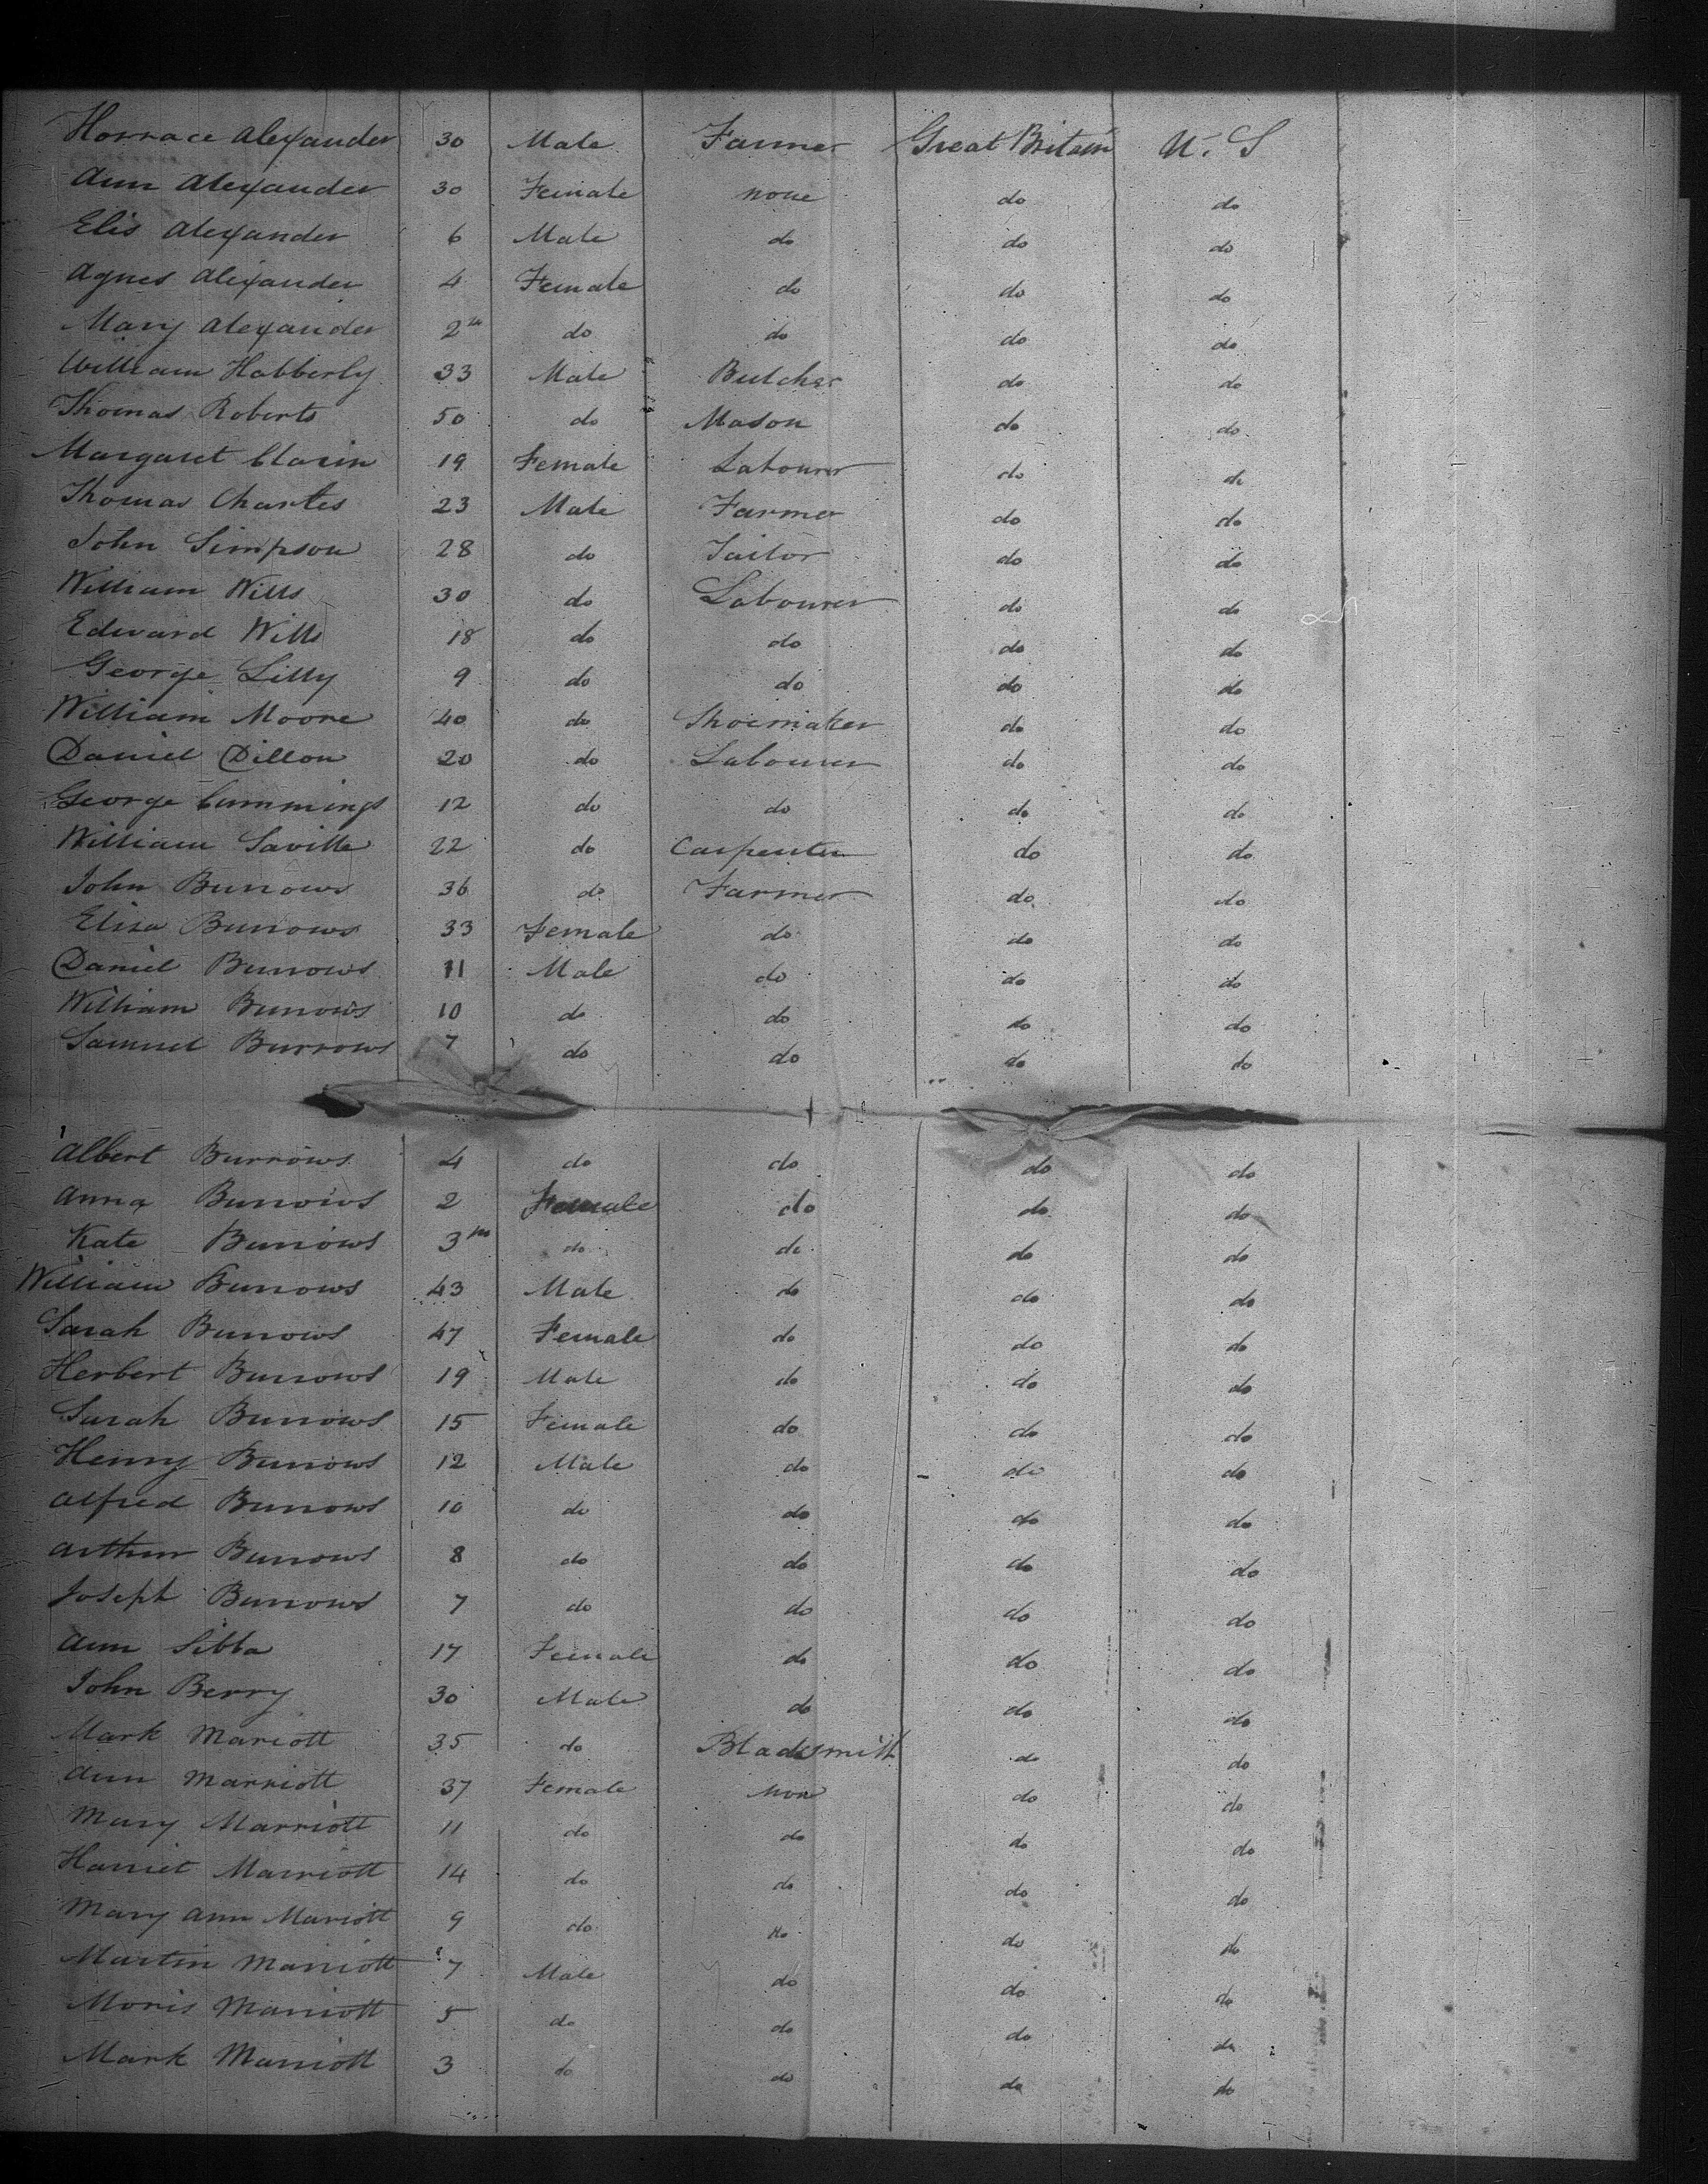 Horrace Alexander 30 Male Farmer Great Britain U. S
Ann Alexander 30 Female none do do
Elis Alexander 6 Male do do do
Agnes Alexander 4 Female do do do
Mary Alexander 2 do do do do
William Habberly 33 Male Butcher do do
Thomas Roberts 50 do Mason do do
Margaret Clarin 19 Female Labourer do do
Thomas Charles 23 Male Farmer do do
John Simpson 28 do Tailor do do
William Wills 30 do Labourer do do
Edward Wills 18 do do do do
George Lilly 9 do do do do
William Moore 40 do Shoemaker do do
Daniel Dillon 20 do Labourer do do
George Cummings 12 do do do do
William Saville 22 do Carpenter do do
John Burrows 36 do Farmer do do
Eliza Burrows 33 Female do do do
Daniel Burrows 11 Male do do do
William Burrows 10 do do do do
Samuel Burrows 7 do do do do
Albert Burrows 4 do do do do
Anna Burrows 2 Female do do do
Kate Burrows 3 do do do do
William Burrows 43 Male do do do
Sarah Burrows 47 Female do do do
Herbert Burrows 19 Male do do do
Sarah Burrows 15 Female do do do
Henry Burrows 12 Male do do do
Alfred Burrows 10 do do do do
Arthur Burrows 8 do do do do
Joseph Burrows 7 do do do do
Ann Sibba 17 Female do do do
John Berry 30 Male do do do
Mark Mariott 35 do Blacksmith do do
Ann Marriott 37 Female Non do do
Mary Marriott 11 do do do do
Harriet Marriott 14 do do do do
Mary Ann Mariott 9 do do do do
Martin Marriott 7 Male do do do
Moris Marriott 5 do do do do
Mark Marriott 3 do do do do